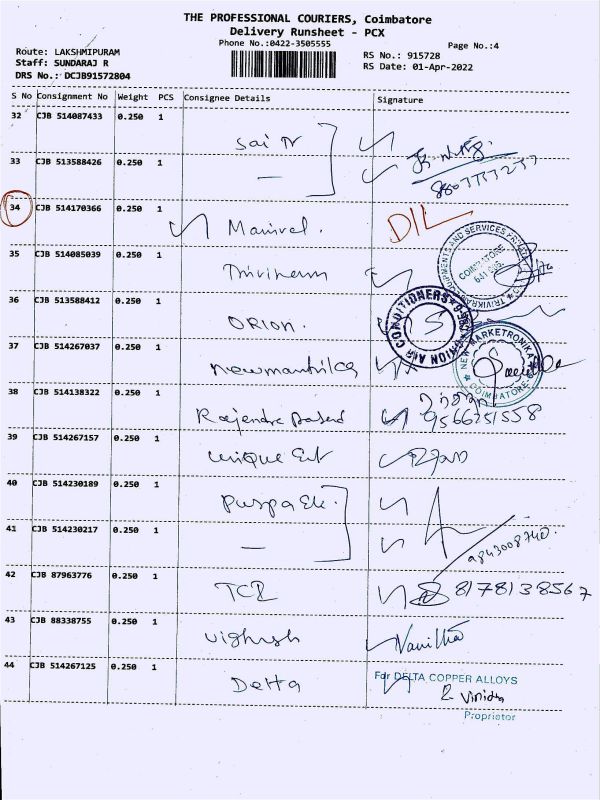 THE PROFESSIONAL COURIERS, Coimbatore
Delivery Runsheet - PCX
Phone No.:0422-3505555
Page No.:4
Route: LAKSHMIPURAM
Staff: SUNDARAJ R
DRS No.: DCJB91572804
RS No.: 915728
RS Date: 01-Apr-2022
S No Consignment No Weight PCS Consignee Details Signature
32 CJB 514087433 0.250 1
Sai
33 CJB 513588426 0.250 1
34 CJB 514170366 0.250 1
Manivel. DIL
35 CJB 514085039 0.250 1
COIMBATORE
36 CJB 513588412 0.250 1
ORION. ORION AIR CONDITIONERS
37 CJB 514267037 0.250 1
NEW MARKETRONIKA
COIMBATORE
38 CJB 514138322 0.250 1
Rajendra 9566351558
39 CJB 514267157 0.250 1
Unique Ent
40 CJB 514230189 0.250 1
Puspa Ele.
41 CJB 514230217 0.250 1
9843008740.
42 CJB 87963776 0.250 1
TCI 8178138567
43 CJB 88338755 0.250 1
Vighnesh
44 CJB 514267125 0.250 1
Delta For DELTA COPPER ALLOYS
Proprietor